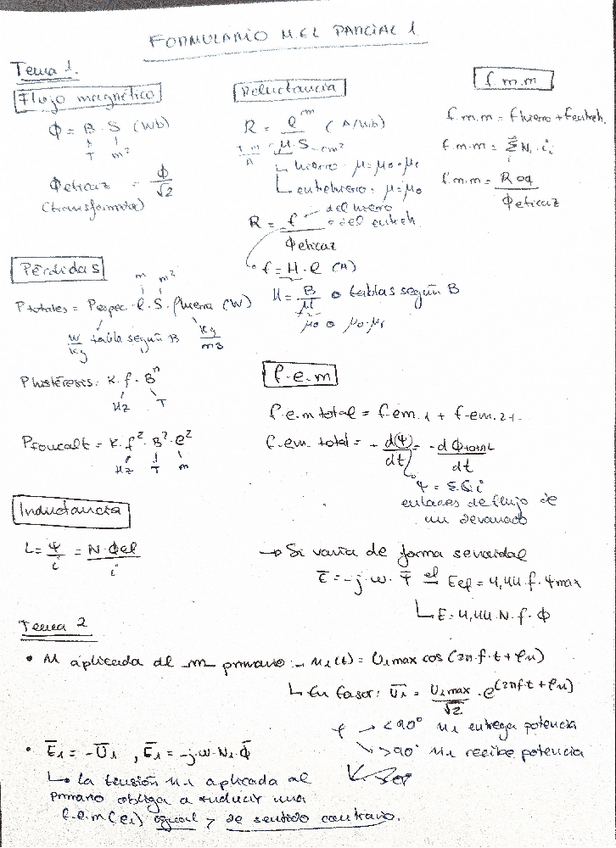 FORMULARIO M.E.L PARCIAL 1
Tema 1.
Flujo magnético
Φ = B · S (Wb)
T m²
Φeficaz = Φ/√2
(transformador)
Reluctancia
R = l/(μ·S) (A/Wb)
m
m²
hierro · μ = μ0·μr
entrehierro: μ = μ0
R = f/Φeficaz
del hierro
o del entreh.
f = H·l (A)
H = B/μ o tablas según B
μ0 o μ0·μr
f.m.m
f.m.m = fhierro + fentreh.
f.m.m = Σ Ni·ii
f.m.m =
Φeficaz
Pérdidas
m m²
Ptotales = Pespec·l·S·ρhierro (W)
W/kg tabla según B kg/m3
Phistéresis: K·f·Bⁿ
Hz T
Pfoucalt = K·f²·B²·e²
Hz T m
f.e.m
f.e.m total = f.em.1 + f.em.2+.
f.em. total = - d(Ψ)/dt = - dΦtotal/dt
enlaces de flujo de
un devanado
Inductancia
L = Ψ/i = N·Φef/i
→ Si varía de forma senoidal
E = -j·w·Ψ ef Eef = 4,44·f·Ψmax
E = 4,44·N·f·Φ
Tema 2
• M aplicada al m primario: u1(t) = U1max cos(2π·f·t + φu)
En fasor: U1 = U1max/√2 · e(2πft + φu)
φ → <90° u1 entrega potencia
>90° u1 recibe potencia
• E1 = -U1 , E1 = -j·w·N1·Φ
↳ la tensión u1 aplicada al
primario obliga a inducir una
f.e.m(e1) igual y de sentido contrario.